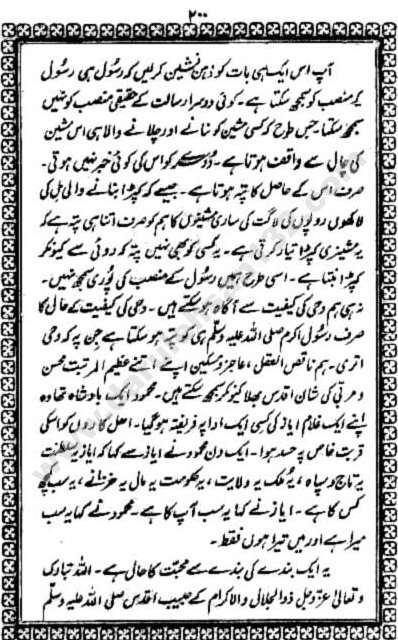 ۲۰۰
آپ اس ایک ہی بات کو ذہن نشین کر لیں کہ رسول ہی رسول
کے منصب کو سمجھ سکتا ہے۔ کوئی دوسرا رسالت کے حقیقی منصب کو نہیں
سمجھ سکتا۔ جس طرح کہ کسی مشین کو بنانے اور چلانے والا ہی اس مشین
کی چال سے واقف ہوتا ہے۔ دوسرے کو اس کی کوئی خبر نہیں ہوتی۔
صرف اس کے حاصل کا پتہ ہوتا ہے۔ جیسے کہ کپڑا بنانے والی مل کی
لاکھوں روپوں کی لاگت کی ساری مشینوں کا ہم کو صرف اتنا ہی پتہ ہے کہ
یہ مشینری کپڑا تیار کرتی ہے۔ یہ کسی کو بھی نہیں پتہ کہ روئی سے کیونکر
کپڑا بنتا ہے۔ اسی طرح ہمیں رسول کے منصب کی پوری سمجھ نہیں۔
نہ ہی ہم وحی کی کیفیت سے آگاہ ہو سکتے ہیں۔ وحی کی کیفیت کے حال کا
صرف رسول اکرم صلی اللہ علیہ وسلم ہی کو پتہ ہو سکتا ہے جن پر کہ وحی
اتری۔ ہم ناقص العقل، عاجز و مسکین اپنے اتنے عظیم المرتبت محسن
و مربی کی شان اقدس بھلا کیونکر سمجھ سکتے ہیں۔ محمود ایک بادشاہ تھا وہ
اپنے ایک غلام ایاز کی کسی ایک ادا پہ فریفتہ ہو گیا۔ اہل کاروں کو اسکی
قربت خاص پہ حسد ہوا۔ ایک دن محمود نے ایاز سے کہا کہ ایاز یہ سلطنت
یہ تاج و سپاہ، یہ ملک یہ ولایت، یہ حکومت یہ مال یہ خزانے، یہ سب کچھ
کس کا ہے۔ ایاز نے کہا یہ سب آپ کا ہے۔ محمود نے کہا یہ سب
میرا ہے اور میں تیرا ہوں فقط۔
یہ ایک بندے کی بندے سے محبت کا حال ہے۔ اللہ تبارک
و تعالیٰ عز و جل ذوالجلال والاکرام کے حبیب اقدس صلی اللہ علیہ وسلم